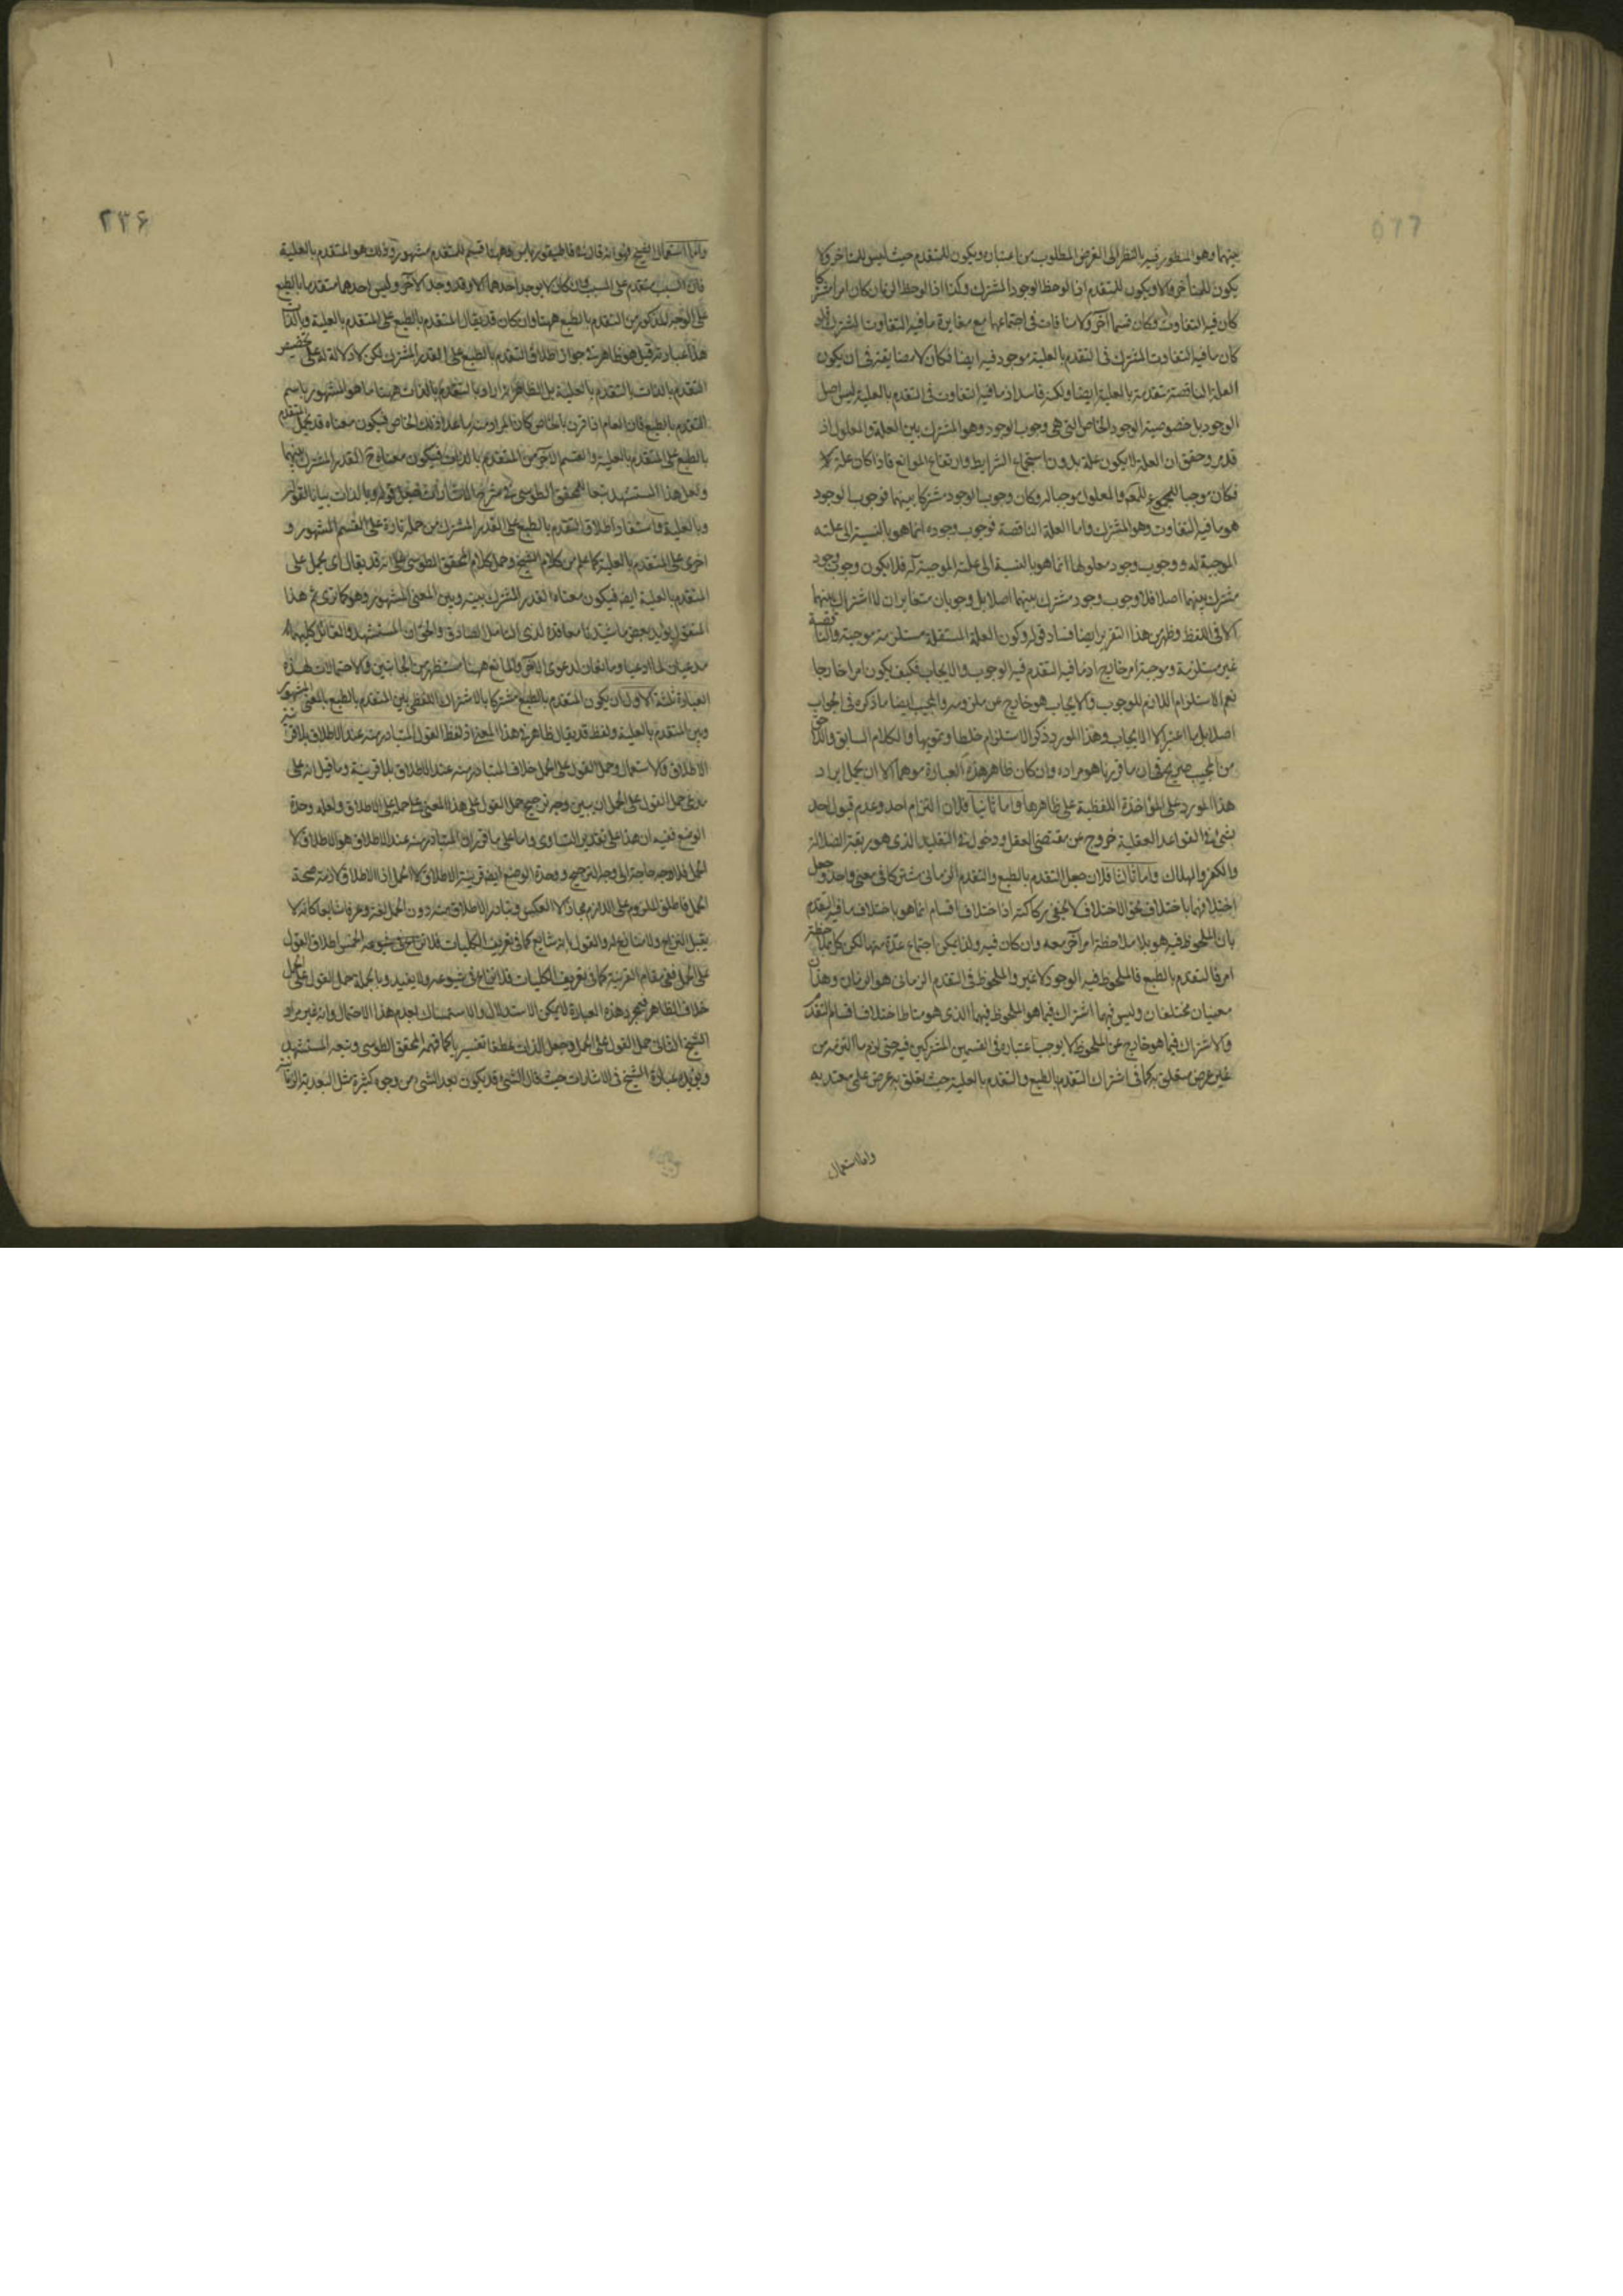 بينهما وهو المنظور فيه بالنظر الى الغرض المطلوب من اعتباره ويكون للمتقدم حيث ليس للمتاخر ولا
يكون للمتأخر الا ويكون للمتقدم اذا لوحظ الوجود المشترك وكذا اذا لوحظ الزمان كان امرا مشتركا
كان فيه التفاوت وكان قسما آخر ولا منافات في اجتماعهما مع مغايرة ما فيه التفاوت المشترك
كان ما فيه التفاوت المشترك في التقدم بالعلية موجود فيه ايضا فكان لا مضايقة في ان يكون
العلة الناقصة متقدمة بالعلية ايضا ولكنه فاسد اذ ما فيه التفاوت في التقدم بالعلية ليس اصل
الوجود بل خصوصية الوجود الخاص التي هي وجوب الوجود وهو المشترك بين العلة والمعلول اذ
قد مر وحقق ان العلة لا يكون علة بدون استجماع الشرايط وارتفاع الموانع فاذا كان علة
فكان موجبا للمعلول والمعلول موجبا له وكان وجوب الوجود مشتركا بينهما فوجوب الوجود
هو ما فيه التفاوت وهو المشترك واما العلة الناقصة فوجوب وجوده انما هو بالنسبة الى علته
الموجبة له ووجوب وجود معلولها انما هو بالنسبة الى علته الموجبة له فلا يكون وجوب وجود
مشترك بينهما اصلا فلا وجوب وجود مشترك بينهما اصلا بل وجوبان متغايران لا اشتراك بينهما
الا في اللفظ وظهر من هذا التقرير ايضا فساد قوله وكون العلة المستقلة مستلزمة موجبة والناقصة
غير مستلزمة وموجبة امر خارج اذ ما فيه التقدم فيه الوجوب والايجاب فكيف يكون امرا خارجا
نعم الاستلزام اللازم للوجوب والايجاب هو خارج عن ملزومه والمجيب ايضا ما ذكره في الجواب
اصلا بل ما اعتبر الا الايجاب وهذا المورد ذكر الاستلزام خلطا وتمويها والكلام السابق واللاحق
من المجيب صريح في ان ما قررناه هو مراده وان كان ظاهر هذه العبارة موهما الا ان يحمل ايراد
هذا المورد على المؤاخذة اللفظية على ظاهرها واما ثانيا فلان التزام احد وعدم قبول احد
بشئ في القواعد العقلية خروج عن مقتضى العقل ودخول في التقليد الذي هو ربقة الضلالة
والكفر والهلاك واما ثالثا فلان جعل التقدم بالطبع والتقدم الزماني مشتركا في معنى واحد وجعل
اختلافهما باختلاف الاختلاف لا يخفى ركاكته اذ اختلاف اقسام انما هو باختلاف ما فيه التقدم
بان الملحوظ فيه هو بلا ملاحظة امر آخر معه وان كان فيه ولذا يمكن اجتماع عدة منها لكن كل بملاحظة
امر فالتقدم بالطبع فالملحوظ فيه الوجود لا غير والملحوظ في التقدم الزماني هو الزمان وهذان
معنيان مختلفان وليس فيهما اشتراك فيما هو الملحوظ فيهما الذي هو مناط اختلاف اقسام التقدم
والاشتراك فيما هو خارج عن الملحوظ لا يوجب اعتباره في القسمين المشتركين فيه حتى لزم ما التزمه من
غير غرض متعلق به كما في اشتراك التقدم بالطبع والتقدم بالعلية حيث يتعلق به غرض علمي معتد به
واما استعمال
٢٣۶
واما استعمال الشيخ فهو انه قال في قاطيغورياس وههنا قسم للمتقدم مشهور وذلك هو المتقدم بالعلية
فان السبب متقدم على المسبب وان كان لا يوجد احدهما الا وقد وجد الآخر وليس احدهما متقدما بالطبع
على الوجه المذكور من التقدم بالطبع ههنا وان كان قد يقال المتقدم بالطبع على المتقدم بالعلية وبالذات
هذا عبارته قيل هو ظاهر في جواز اطلاق التقدم بالطبع على القدر المشترك لكن لا دلالة له على تخصيص
التقدم بالذات بالتقدم بالعلية بل الظاهر انه اراد بالمتقدم بالذات ههنا ما هو المشهور باسم
التقدم بالطبع فان العام اذا قرن بالخاص كان المراد منه ما عدا ذلك الخاص فيكون معناه قد يحمل المتقدم
بالطبع على المتقدم بالعلية والقسم الآخر من المتقدم بالذات فيكون معناه ح القدر المشترك بينهما
ولعل هذا المستشهد تبعا للمحقق الطوسي في شرح الاشارات فجعل قوله وبالذات بيانا لقوله
وبالعلية واستفاد اطلاق التقدم بالطبع على القدر المشترك من حمله تارة على القسم المشهور و
اخرى على المتقدم بالعلية كما علم من كلام الشيخ وحمل كلام المحقق الطوسي على انه قد يقال اى يحمل على
المتقدم بالعلية ايضا فيكون معناه القدر المشترك بينه وبين المعنى المشهور وهو كما ترى ثم هذا
المنقول يؤيد بعض ما شيدنا معاقده لدى التامل الصادق والحق ان المستشهد والقائل كليهما
مدعيان لما ادعيا ومانعان لدعوى الآخر والمانع ههنا مستظهر من الجانبين والاحتمالات لهذه
العبارة ثلثة الاول ان يكون المتقدم بالطبع مشتركا بالاشتراك اللفظي بين المتقدم بالطبع بالمعنى المشهور
وبين المتقدم بالعلية ولفظ قد يقال ظاهر في هذا المعنى اذ لفظ القول المتبادر منه عند الاطلاق بلا قرينة
الاطلاق والاستعمال وحمل القول على الحمل خلاف المتبادر منه عند الاطلاق بلا قرينة وما قيل انه على
مدعى حمل القول على الحمل ان يبين وجه ترجيح حمل القول على هذا المعنى على حمله على الاطلاق ولعله وحدة
الوضع ففيه ان هذا على تقدير التساوى واما على ما قررنا ان المتبادر منه عند الاطلاق هو الاطلاق لا
الحمل فلا وجه حاجة الى وجه الترجيح ووحدة الوضع ايضا قرينة الاطلاق لا الحمل اذ الاطلاق لازمة صحة
الحمل فاطلق الملزوم على اللازم مجازا لا العكس وتبادر الاطلاق منه دون الحمل لغة وعرفا شايعا كانه لا
يقبل النزاع ولا منازع له والقول بانه شايع كما في تعريف الكليات فلا نزاع في شيوعه اطلاق القول
على الحمل ففي مقام القرينة كما في تعريف الكليات فلا نزاع في شيوعه ولا يفيد وبالجملة حمل القول على الحمل
خلاف الظاهر فبمجرد هذه العبارة لا يمكن الاستدلال والاستمساك بعدم هذا الاحتمال وانه غير مراد
الشيخ الثاني حمل القول على الحمل وجعل الذات عطفا تفسيريا كما فهم المحقق الطوسي وتبعه المستشهد
ويؤيده عبارة الشيخ في الاشارات حيث قال الشئ قد يكون بعد الشئ من وجوه كثيرة مثل البعدية الزمانية